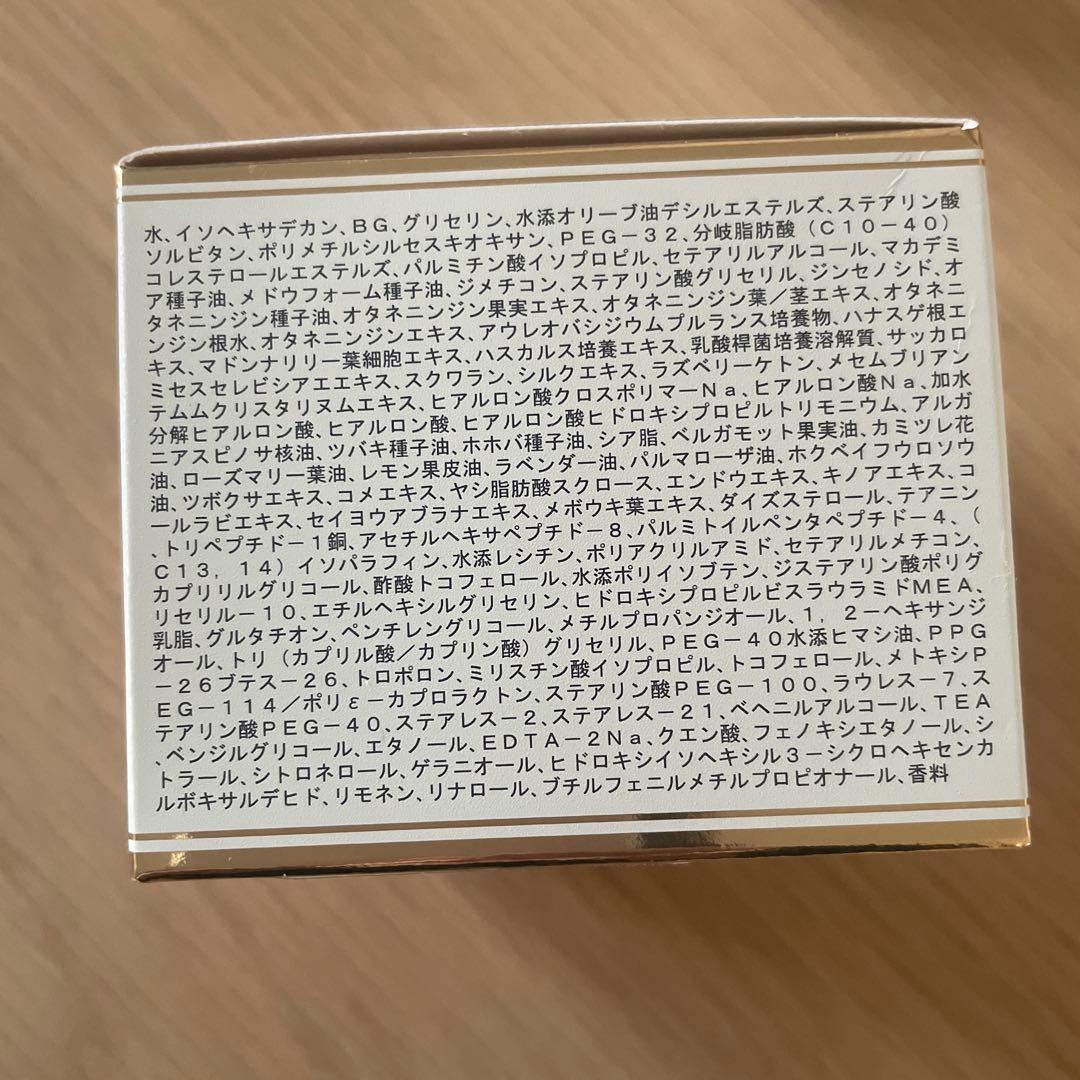 水、イソヘキサデカン、BG、グリセリン、水添オリーブ油デシルエステルズ、ステアリン酸
ソルビタン、ポリメチルシルセスキオキサン、PEG－32、分岐脂肪酸（C10－40）
コレステロールエステルズ、パルミチン酸イソプロピル、セテアリルアルコール、マカデミ
ア種子油、メドウフォーム種子油、ジメチコン、ステアリン酸グリセリル、ジンセノシド、オ
タネニンジン種子油、オタネニンジン果実エキス、オタネニンジン葉／茎エキス、オタネニ
ンジン根水、オタネニンジンエキス、アウレオバシジウムプルランス培養物、ハナスゲ根エ
キス、マドンナリリー葉細胞エキス、ハスカルス培養エキス、乳酸桿菌培養溶解質、サッカロ
ミセスセレビシアエエキス、スクワラン、シルクエキス、ラズベリーケトン、メセムブリアン
テムムクリスタリヌムエキス、ヒアルロン酸クロスポリマーNa、ヒアルロン酸Na、加水
分解ヒアルロン酸、ヒアルロン酸、ヒアルロン酸ヒドロキシプロピルトリモニウム、アルガ
ニアスピノサ核油、ツバキ種子油、ホホバ種子油、シア脂、ベルガモット果実油、カミツレ花
油、ローズマリー葉油、レモン果皮油、ラベンダー油、パルマローザ油、ホクベイフウロソウ
油、ツボクサエキス、コメエキス、ヤシ脂肪酸スクロース、エンドウエキス、キノアエキス、コ
ールラビエキス、セイヨウアブラナエキス、メボウキ葉エキス、ダイズステロール、テアニン
、トリペプチド－1銅、アセチルヘキサペプチド－8、パルミトイルペンタペプチド－4、（
C13，14）イソパラフィン、水添レシチン、ポリアクリルアミド、セテアリルメチコン、
カプリリルグリコール、酢酸トコフェロール、水添ポリイソブテン、ジステアリン酸ポリグ
リセリル－10、エチルヘキシルグリセリン、ヒドロキシプロピルビスラウラミドMEA、
乳脂、グルタチオン、ペンチレングリコール、メチルプロパンジオール、1，2－ヘキサンジ
オール、トリ（カプリル酸／カプリン酸）グリセリル、PEG－40水添ヒマシ油、PPG
－26ブテス－26、トロポロン、ミリスチン酸イソプロピル、トコフェロール、メトキシP
EG－114／ポリε－カプロラクトン、ステアリン酸PEG－100、ラウレス－7、ス
テアリン酸PEG－40、ステアレス－2、ステアレス－21、ベヘニルアルコール、TEA
、ベンジルグリコール、エタノール、EDTA－2Na、クエン酸、フェノキシエタノール、シ
トラール、シトロネロール、ゲラニオール、ヒドロキシイソヘキシル3－シクロヘキセンカ
ルボキサルデヒド、リモネン、リナロール、ブチルフェニルメチルプロピオナール、香料